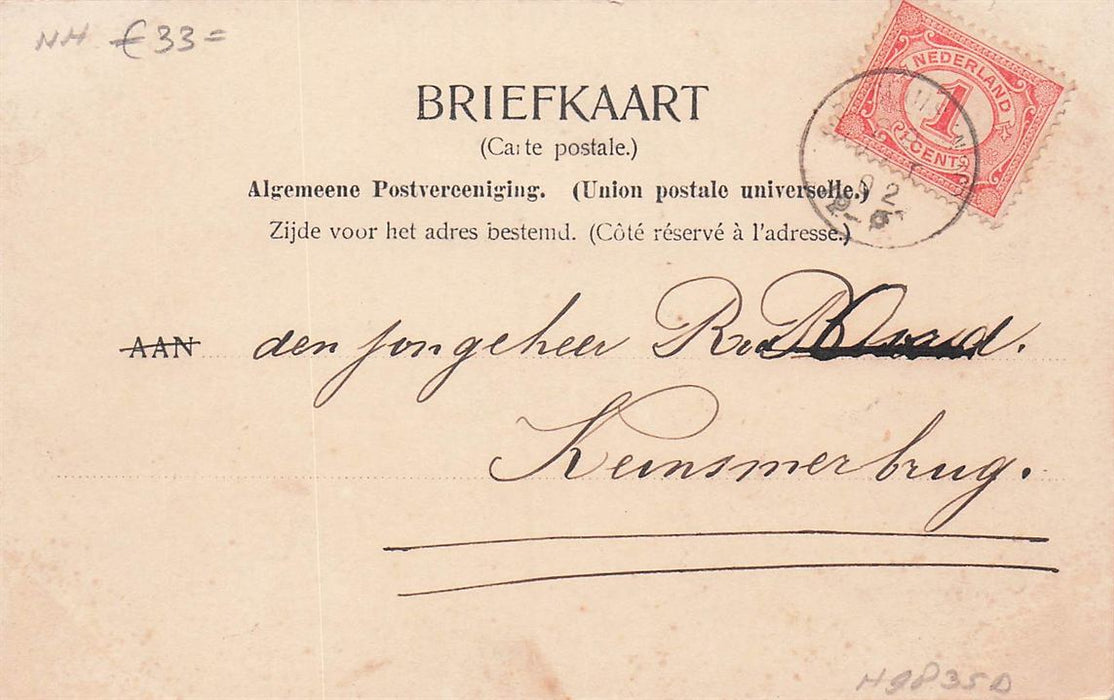 NH € 33=
NEDERLAND
1
CENT
BRIEFKAART
(Carte postale.)
Algemeene Postvereeniging. (Union postale universelle.)
Zijde voor het adres bestemd. (Côté réservé à l'adresse.)
AAN den jongeheer
Keinsmerbrug.
H9835D